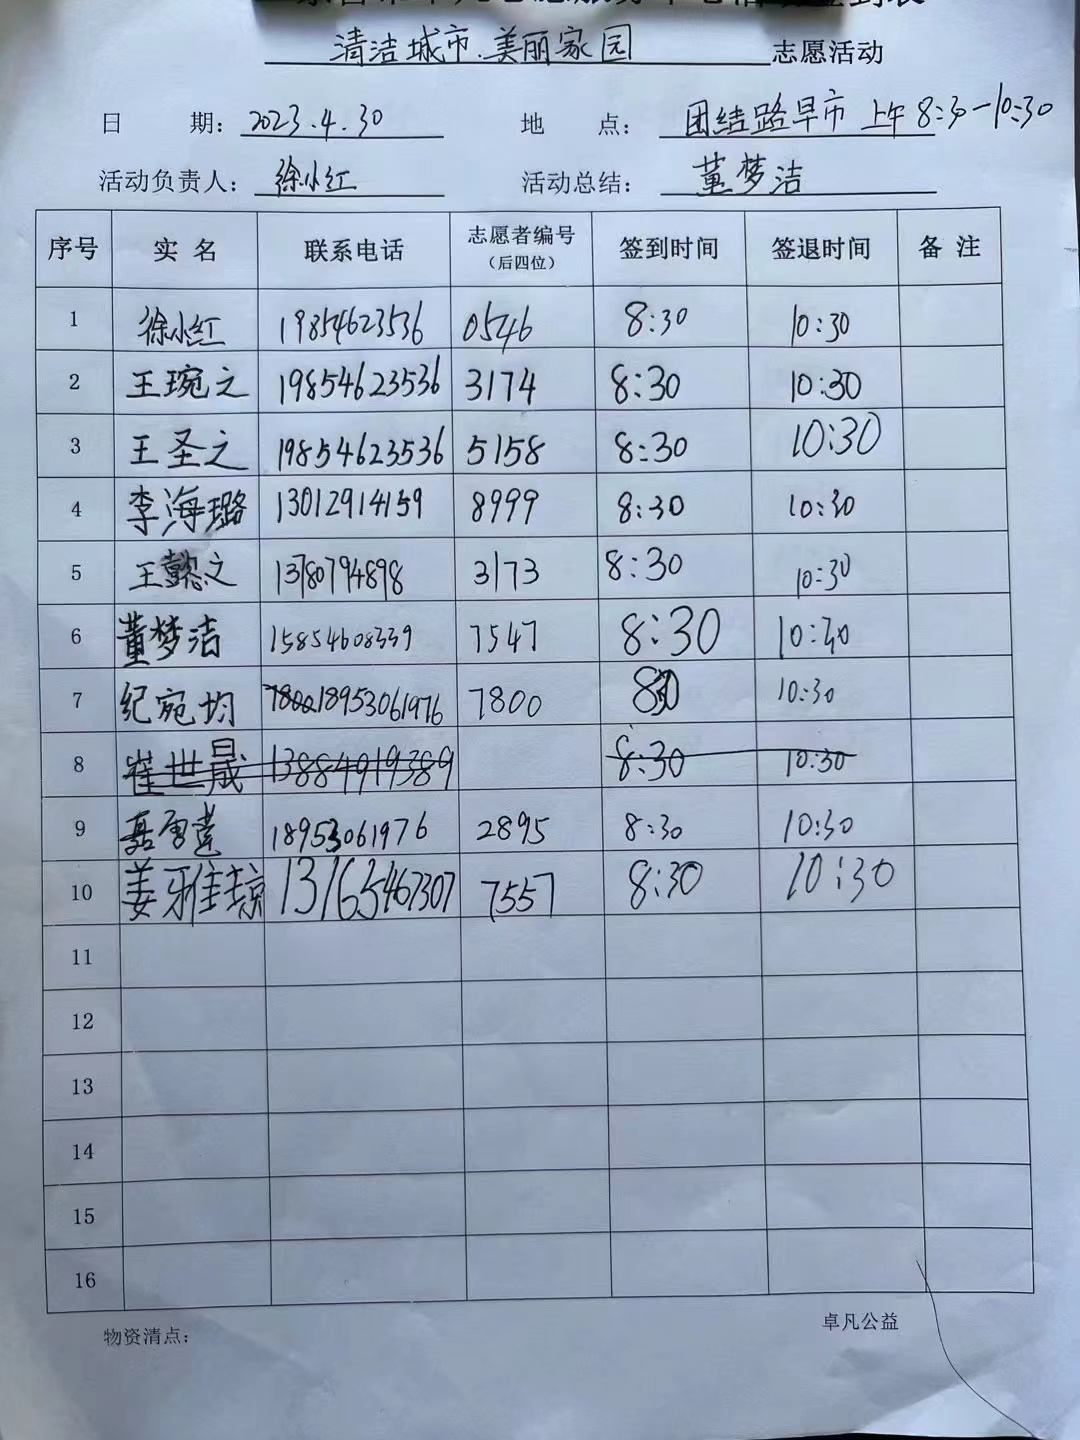 清洁城市、美丽家园 志愿活动
日 期: 2023.4.30 地 点: 团结路早市 上午 8:30-10:30
活动负责人: 徐小红 活动总结: 董梦洁
序号 实 名 联系电话 志愿者编号 (后四位) 签到时间 签退时间 备 注
1 徐小红 19854623536 0546 8:30 10:30
2 王琬之 19854623536 3174 8:30 10:30
3 王圣之 19854623536 5158 8:30 10:30
4 李海璐 13012914159 8999 8:30 10:30
5 王懿之 13780794898 3173 8:30 10:30
6 董梦洁 15854608339 7547 8:30 10:30
7 纪宛均 18953061976 7800 830 10:30
8 崔世晟 13884919389 8:30 10:30
9 18953061976 2895 8:30 10:30
10 姜雅琼 13165467307 7557 8:30 10:30
11
12
13
14
15
16
物资清点: 卓凡公益